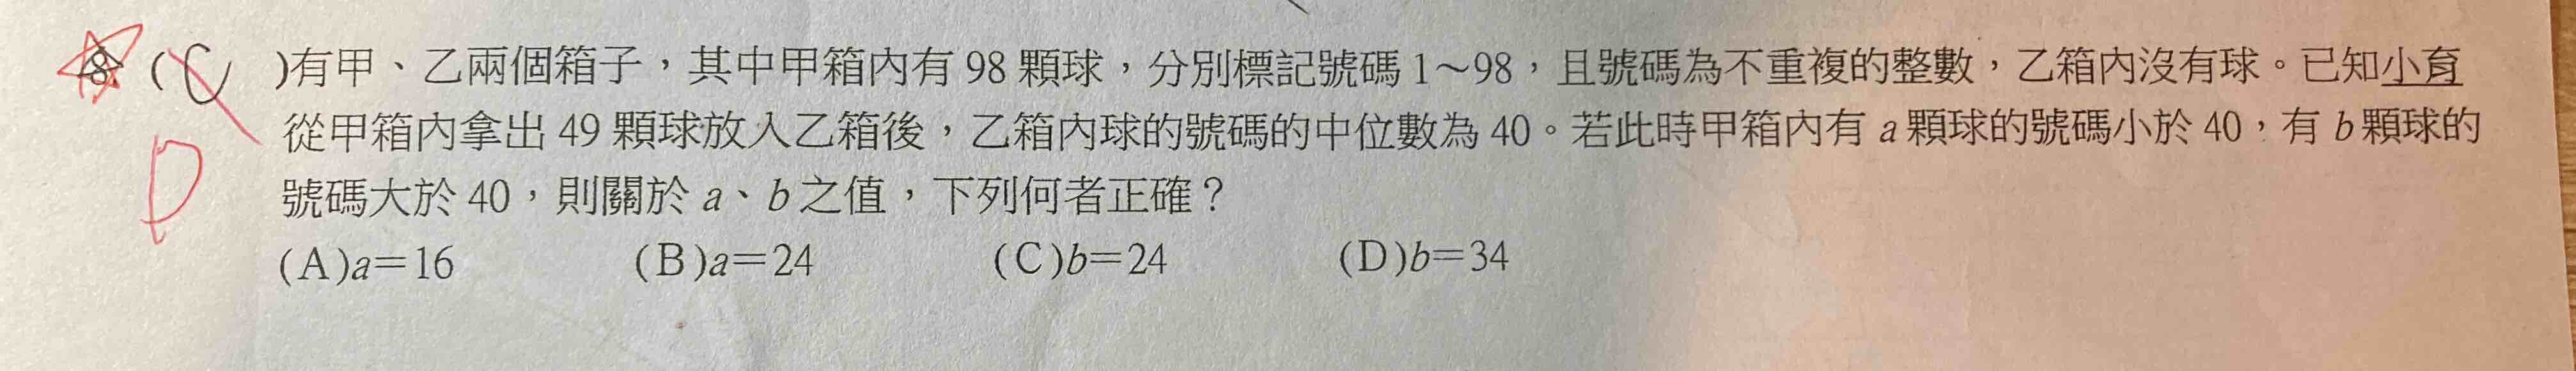 8. ( C )有甲、乙兩個箱子，其中甲箱內有 98 顆球，分別標記號碼 1～98，且號碼為不重複的整數，乙箱內沒有球。已知小育
從甲箱內拿出 49 顆球放入乙箱後，乙箱內球的號碼的中位數為 40。若此時甲箱內有 a 顆球的號碼小於 40，有 b 顆球的
D
號碼大於 40，則關於 a、b 之值，下列何者正確？
(A)a＝16 (B)a＝24 (C)b＝24 (D)b＝34